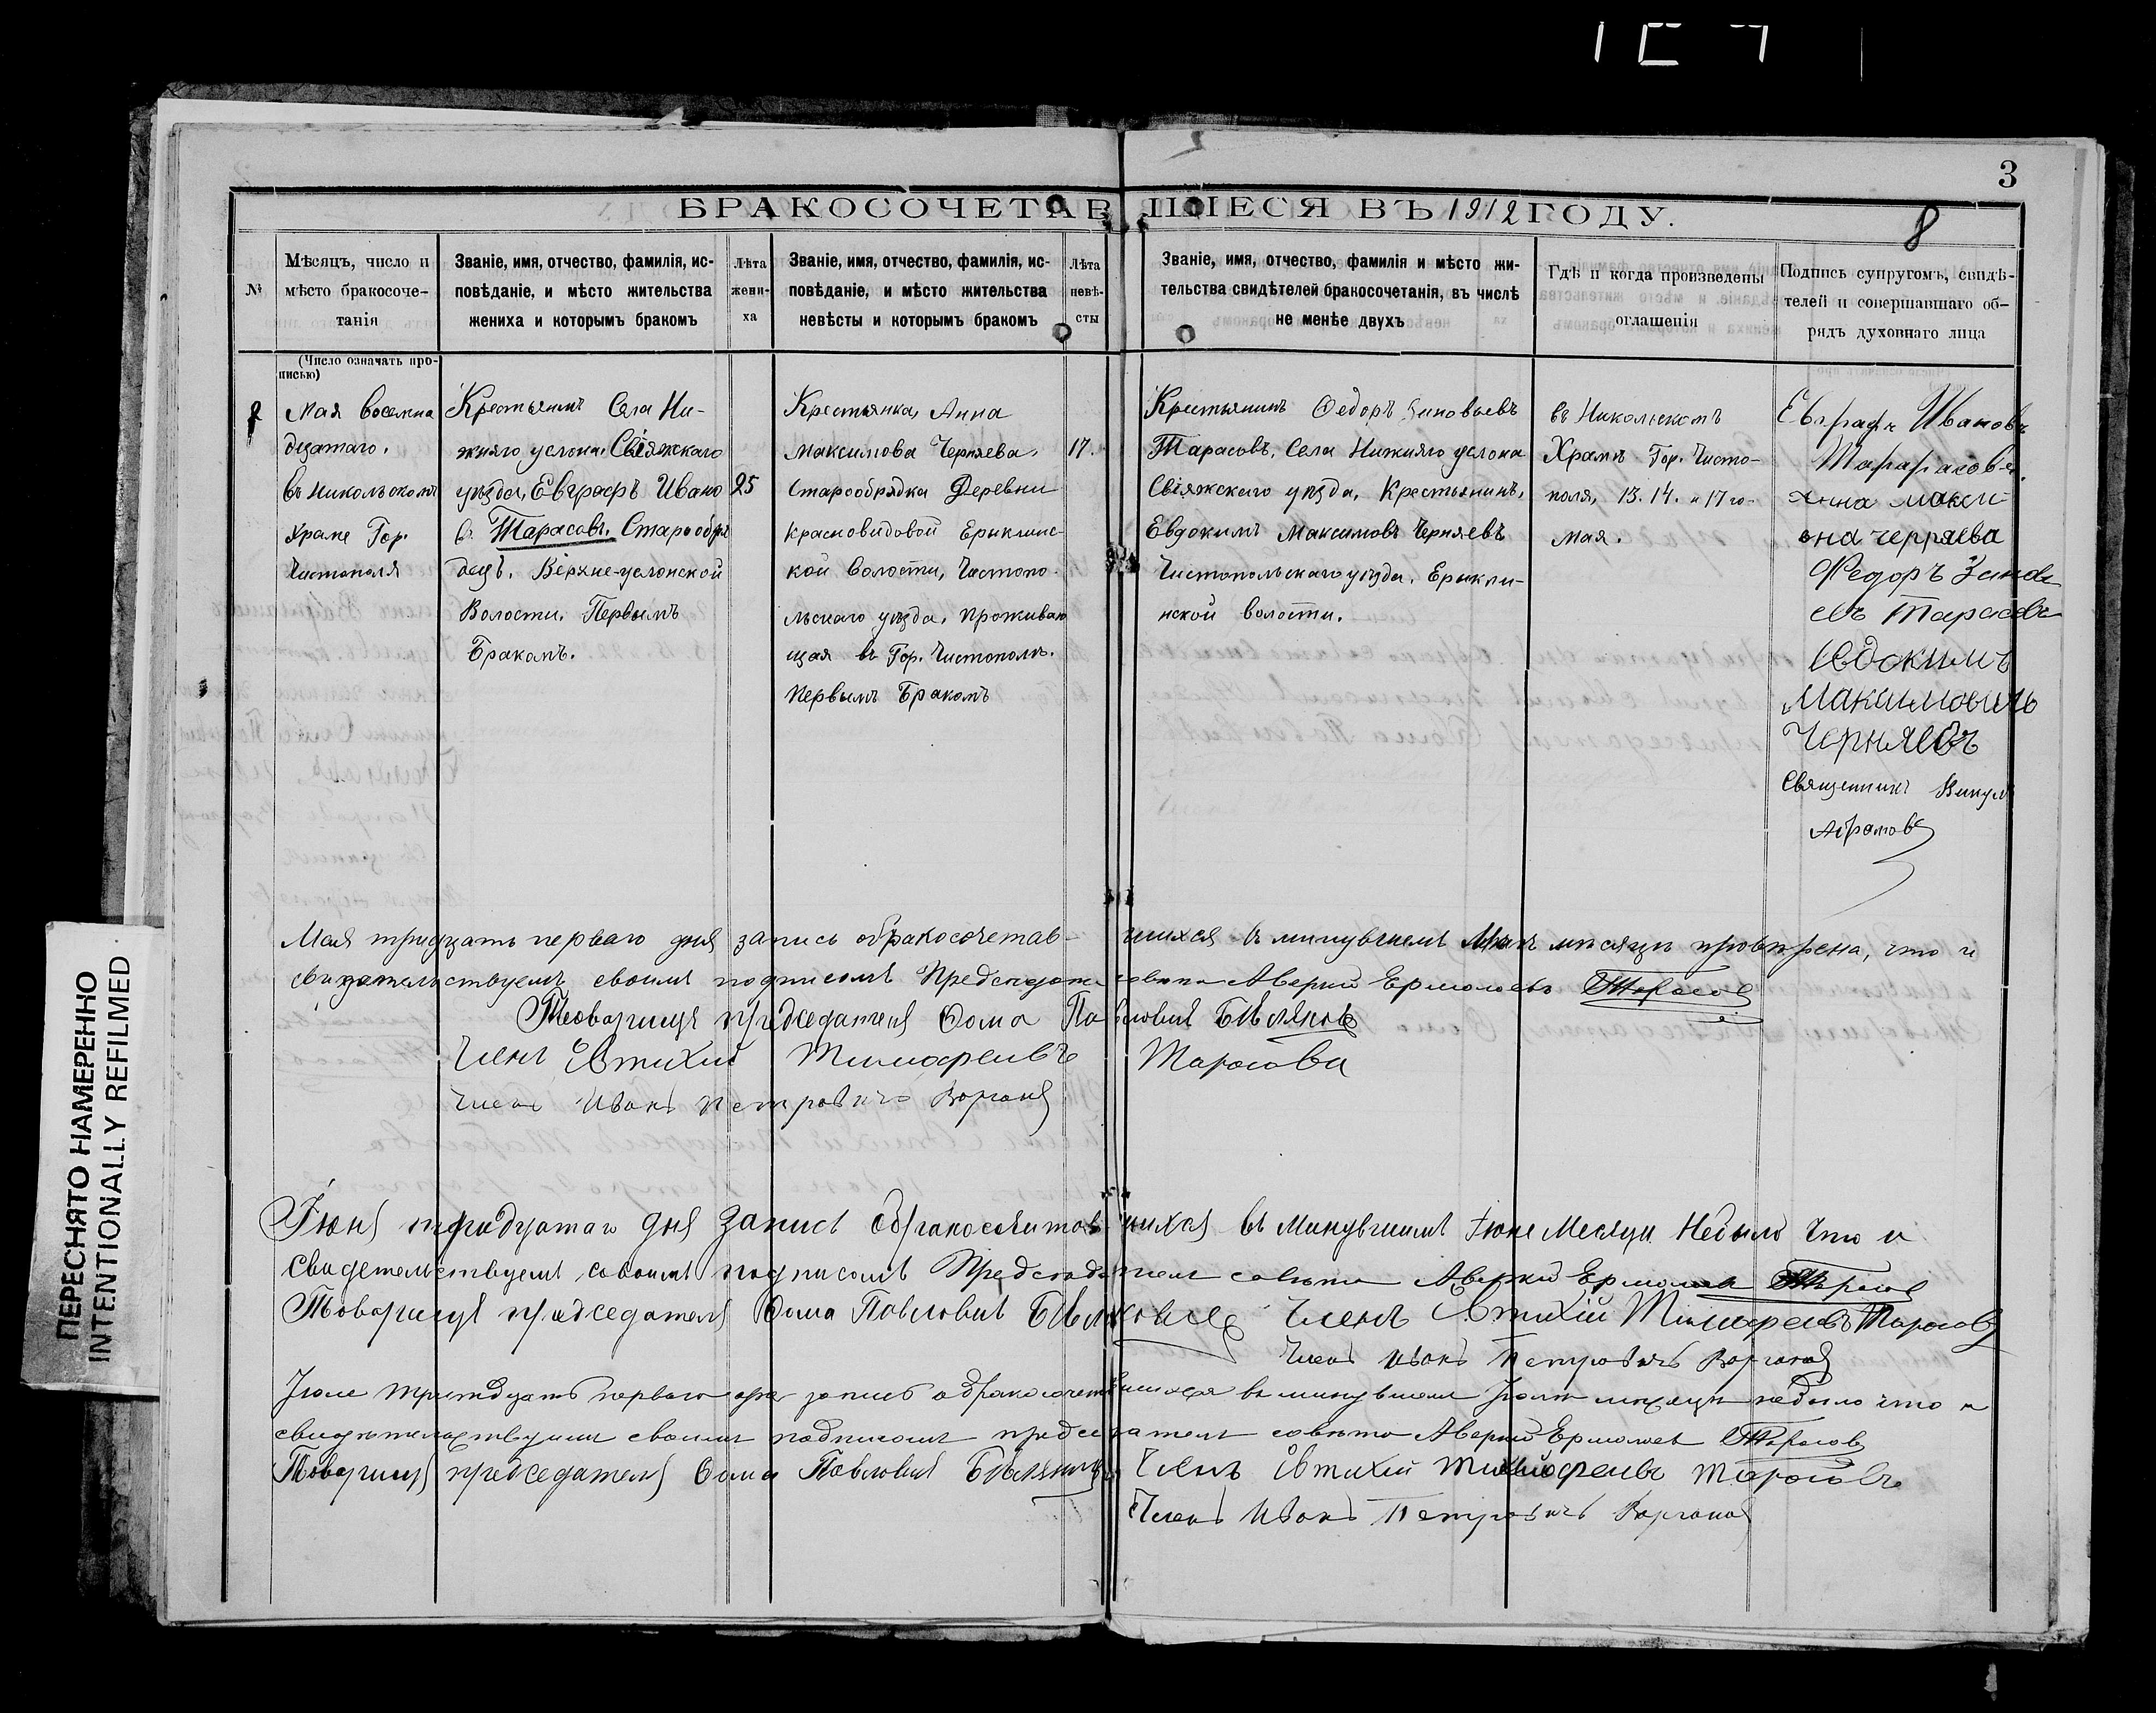 3
БРАКОСОЧЕТАВШІЕСЯ ВЪ 1912 ГОДУ.
8
№
Мѣсяцъ, число и
мѣсто бракосоче-
танія
Званіе, имя, отчество, фамилія, ис-
повѣданіе, и мѣсто жительства
жениха и которымъ бракомъ
Лѣта
жени-
ха
Званіе, имя, отчество, фамилія, ис-
повѣданіе, и мѣсто жительства
невѣсты и которымъ бракомъ
Лѣта
невѣ-
сты
Званіе, имя, отчество, фамилія и мѣсто жи-
тельства свидѣтелей бракосочетанія, въ числѣ
не менѣе двухъ
Гдѣ и когда произведены
оглашенія
Подпись супругомъ, свидѣ-
телей и совершавшаго об-
рядъ духовнаго лица
(Число означать про-
писью)
Мая восемна
дцатаго.
въ Никольскомъ
Храме Гор.
Чистополя
Крестьянинъ Села Ни-
жняго услона, Свіяжскаго
уѣзда, Евграфъ Ивано
в. Тарасовъ. Старообря
децъ. Верхне-услонской
Волости. Первымъ
Бракомъ.
25
Крестьянка, Анна
Максимова Черняева,
Старообрядка Деревни
Красновидовой Ерыклинс-
кой Волости, Чистопо-
льскаго уѣзда. Проживаю
щая въ Гор. Чистополѣ.
Первымъ Бракомъ
17.
Крестьянинъ Ѳедоръ Зиновьевъ
Тарасовъ, Села Нижняго услона
Свіяжскаго уѣзда, Крестьянинъ,
Евдокимъ Максимовъ Черняевъ
Чистопольскаго уѣзда. Ерыкли-
нской волости.
въ Никольскомъ
Храмѣ Гор. Чисто-
поля, 13. 14. и 17 го-
мая.
Евграфъ Ивановъ
Анна макси
она черряева
Федоръ Зинов
евъ Тарасовъ
Евдокимъ
Максимовичъ
Черняевъ
Священникъ Викулъ
Абрамовъ
Мая тридцать перваго дня запись о бракосочетав-шихся въ минувшемъ Маѣ мѣсяцѣ провѣрена, что и
свидѣтельствуемъ своимъ подписомъ Председатель совета Аверкій Ермолаевъ Тарасовъ
Товарищъ председателя Ѳома Павловичъ Бѣляковъ
Членъ Евтихий Тимофеивъ Тарасовъ
Членъ Иванъ Петровичъ
Июня тридцатаго дня запись о бракосочетавшихся въ минувшимъ Июне Месяцы Небыло что и
Свидетельствуемъ, своимъ подписомъ Председатель совѣта Аверкий Ермолаевъ Тарасовъ
Товарищъ председателя Ѳома Павловичъ Бѣляковъ Членъ Евтихій Тимофеевъ Тарасовъ
Членъ Иванъ Петровичъ
Июле тритдцать перваго дня запись о бракосочетавшихся въ минувшемъ Июлѣ мѣсяцѣ небыло что и
свидѣтельствуимъ своимъ подписомъ председатель совѣта Аверкий Ермолаев Тарасовъ
Товарищъ председателя Ѳома Павловичъ Бѣляковъ Членъ Евтихий Тимофеивъ Тарасовъ
Членъ Иванъ Петровичъ
ПЕРЕСНЯТО НАМЕРЕННО
INTENTIONALLY REFILMED